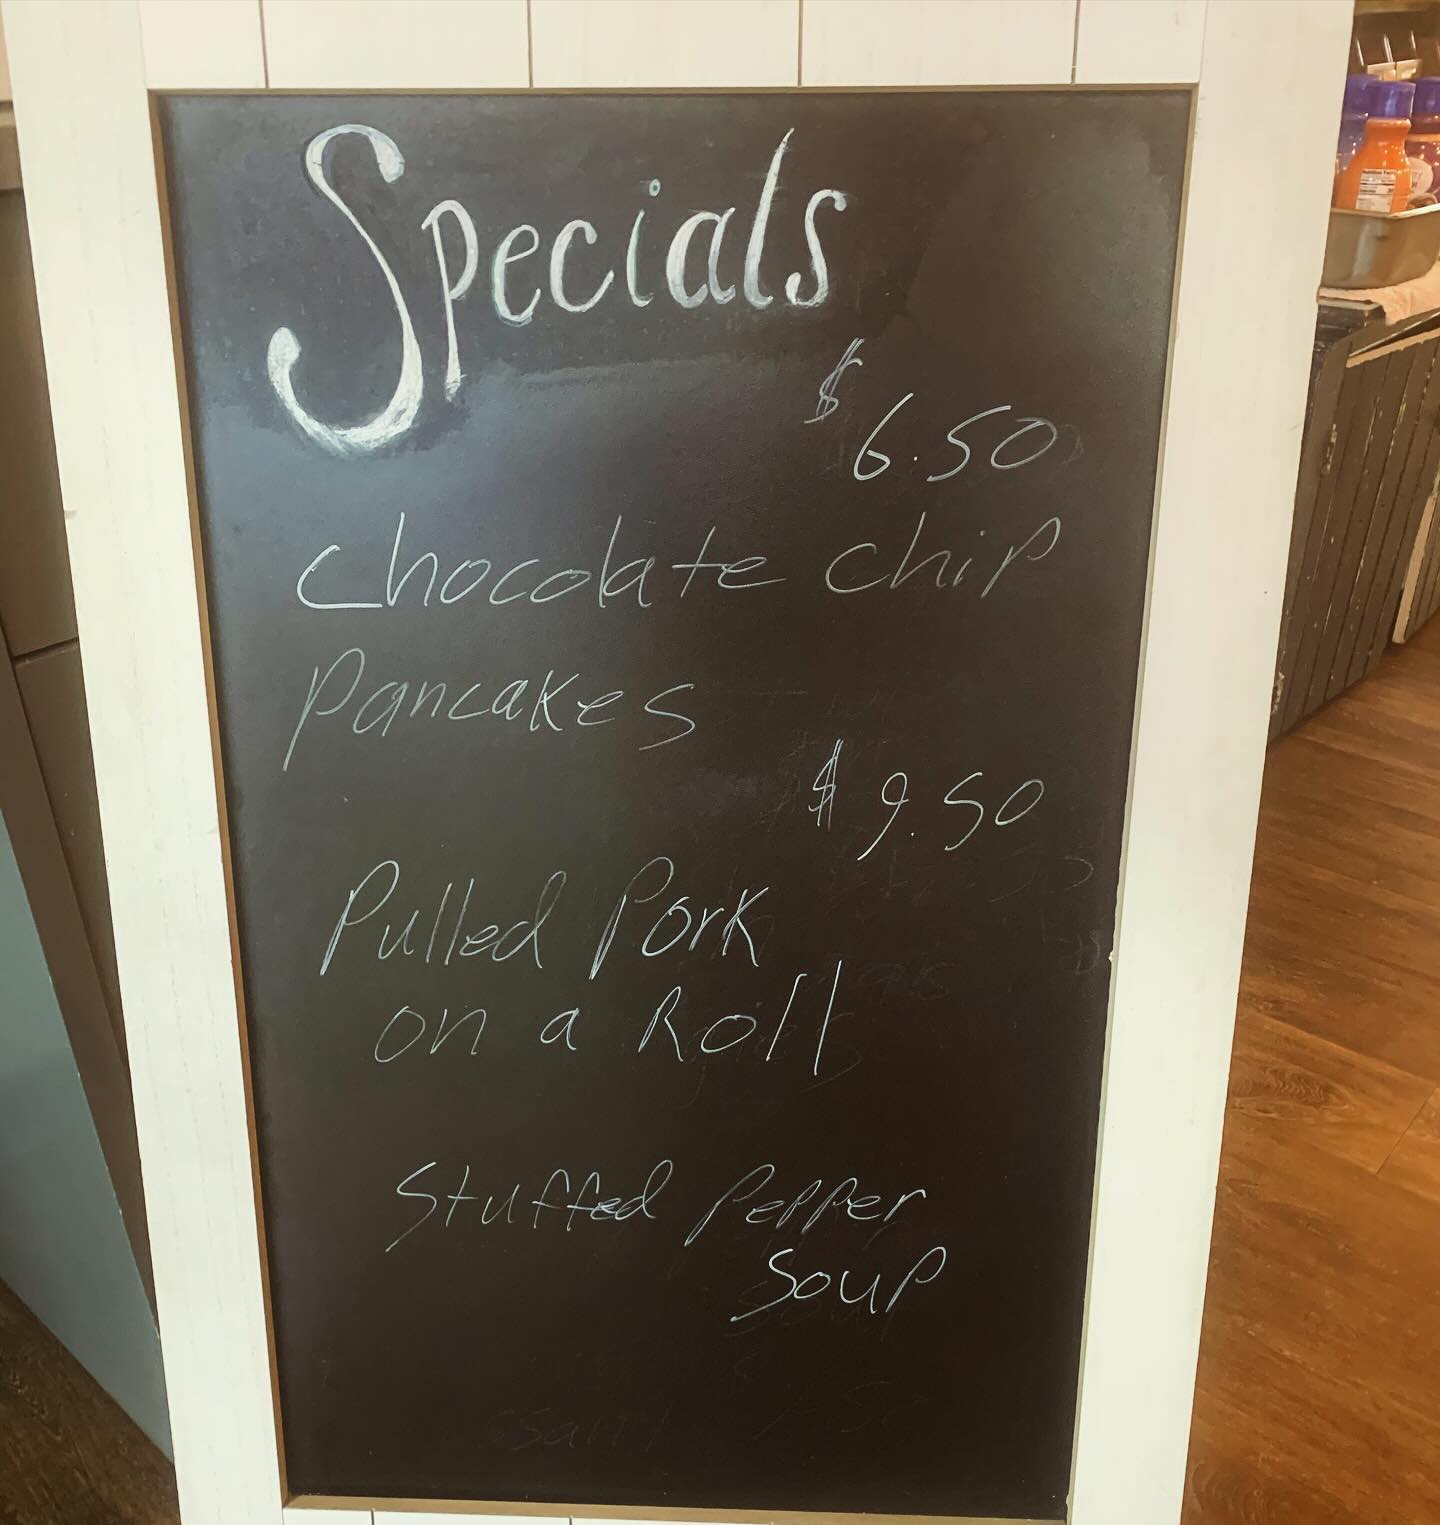 Specials
$ 6.50
chocolate chip
pancakes
$ 9.50
Pulled Pork
on a Roll
Stuffed Pepper
Soup